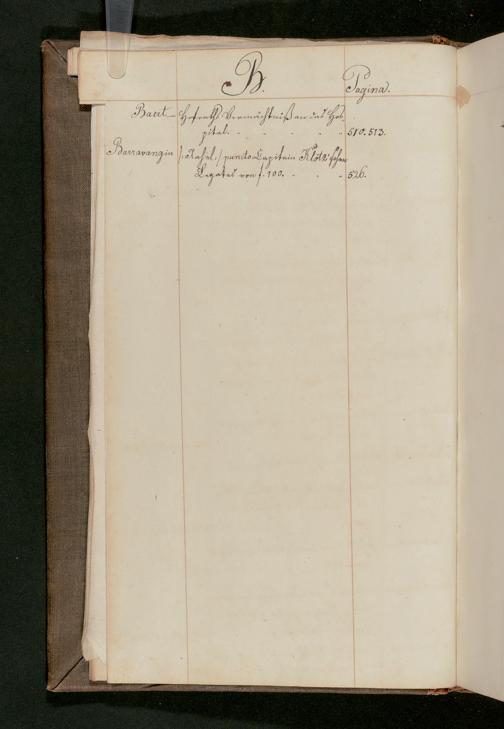 B. Pagina.
Baert Hofraths Vermächtniß an das Hos
pital. - - - - - 510. 513.
Barravangin puncto Capitain Klotz'schen
Legates von f. 100. - - - 526.